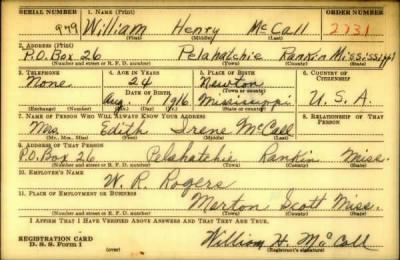 SERIAL NUMBER 1. NAME (Print) ORDER NUMBER
979 William Henry McCall 2731
(First) (Middle) (Last)
2. ADDRESS (Print)
P.O. Box 26 Pelahatchie Rankin Mississippi
(Number and street or R. F. D. number) (Town) (County) (State)
3. TELEPHONE 4. AGE IN YEARS 5. PLACE OF BIRTH 6. COUNTRY OF CITIZENSHIP
None 24 Newton
(Town or county)
DATE OF BIRTH
Aug. 1916 Mississippi U.S.A.
(Exchange) (Number) (Mo.) (Day) (Yr.) (State or country)
7. NAME OF PERSON WHO WILL ALWAYS KNOW YOUR ADDRESS 8. RELATIONSHIP OF THAT PERSON
Mrs Edith Irene McCall
(Mr., Mrs., Miss) (First) (Middle) (Last)
9. ADDRESS OF THAT PERSON
P.O. Box 26 Pelahatchie Rankin Miss.
(Number and street or R. F. D. number) (Town) (County) (State)
10. EMPLOYER'S NAME
W. R. Rogers
11. PLACE OF EMPLOYMENT OR BUSINESS
Morton Scott Miss.
(Number and street or R. F. D. number) (Town) (County) (State)
I AFFIRM THAT I HAVE VERIFIED ABOVE ANSWERS AND THAT THEY ARE TRUE.
REGISTRATION CARD
D. S. S. Form 1 (over) William H. McCall
(Registrant's signature)